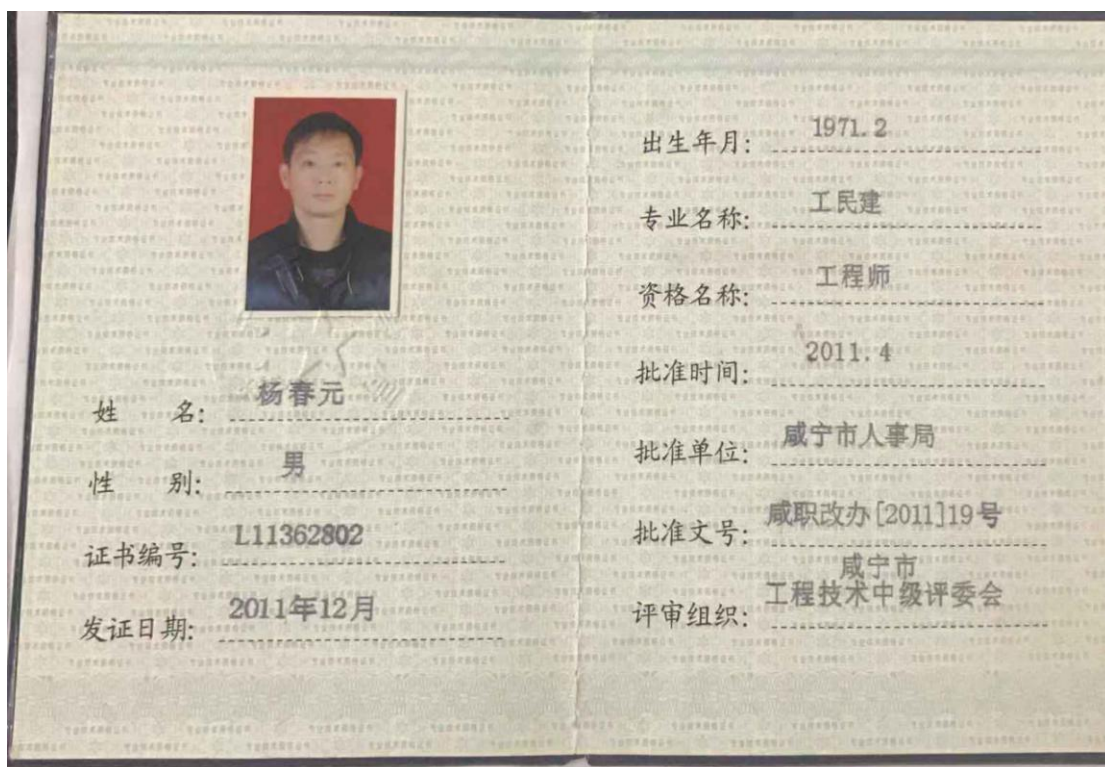 姓 名: 杨春元
性 别: 男
证书编号: L11362802
发证日期: 2011年12月
出生年月: 1971.2
专业名称: 工民建
资格名称: 工程师
批准时间: 2011.4
批准单位: 咸宁市人事局
批准文号: 咸职改办[2011]19号
咸宁市
评审组织: 工程技术中级评委会